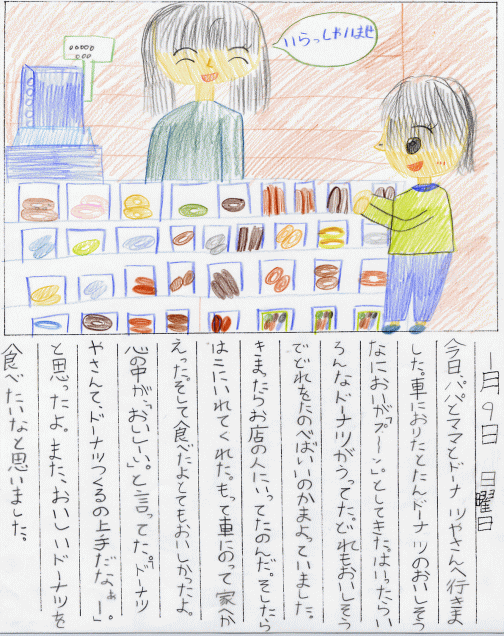 いらっしゃいませ
一月9日 日曜日
今日、パパとママとドーナツやさんへ行きま
した。車におりたとたんドーナツのおいしそう
なにおいが「プ〜ン」。としてきた。はいったらい
ろんなドーナツがうってた。どれもおいしそう
でどれをたのべばいいのかまよっていました。
きまったらお店の人にいってたのんだ。そしたら
はこにいれてくれた。もって車にのって家か
えった。そして食べたよとてもおいしかったよ。
心の中が「おいしい」。と言ってた。「ドーナツ
やさんて、ドーナツつくるの上手だなぁー」。
と思ったよ。また、おいしいドーナツを
食べたいなと思いました。